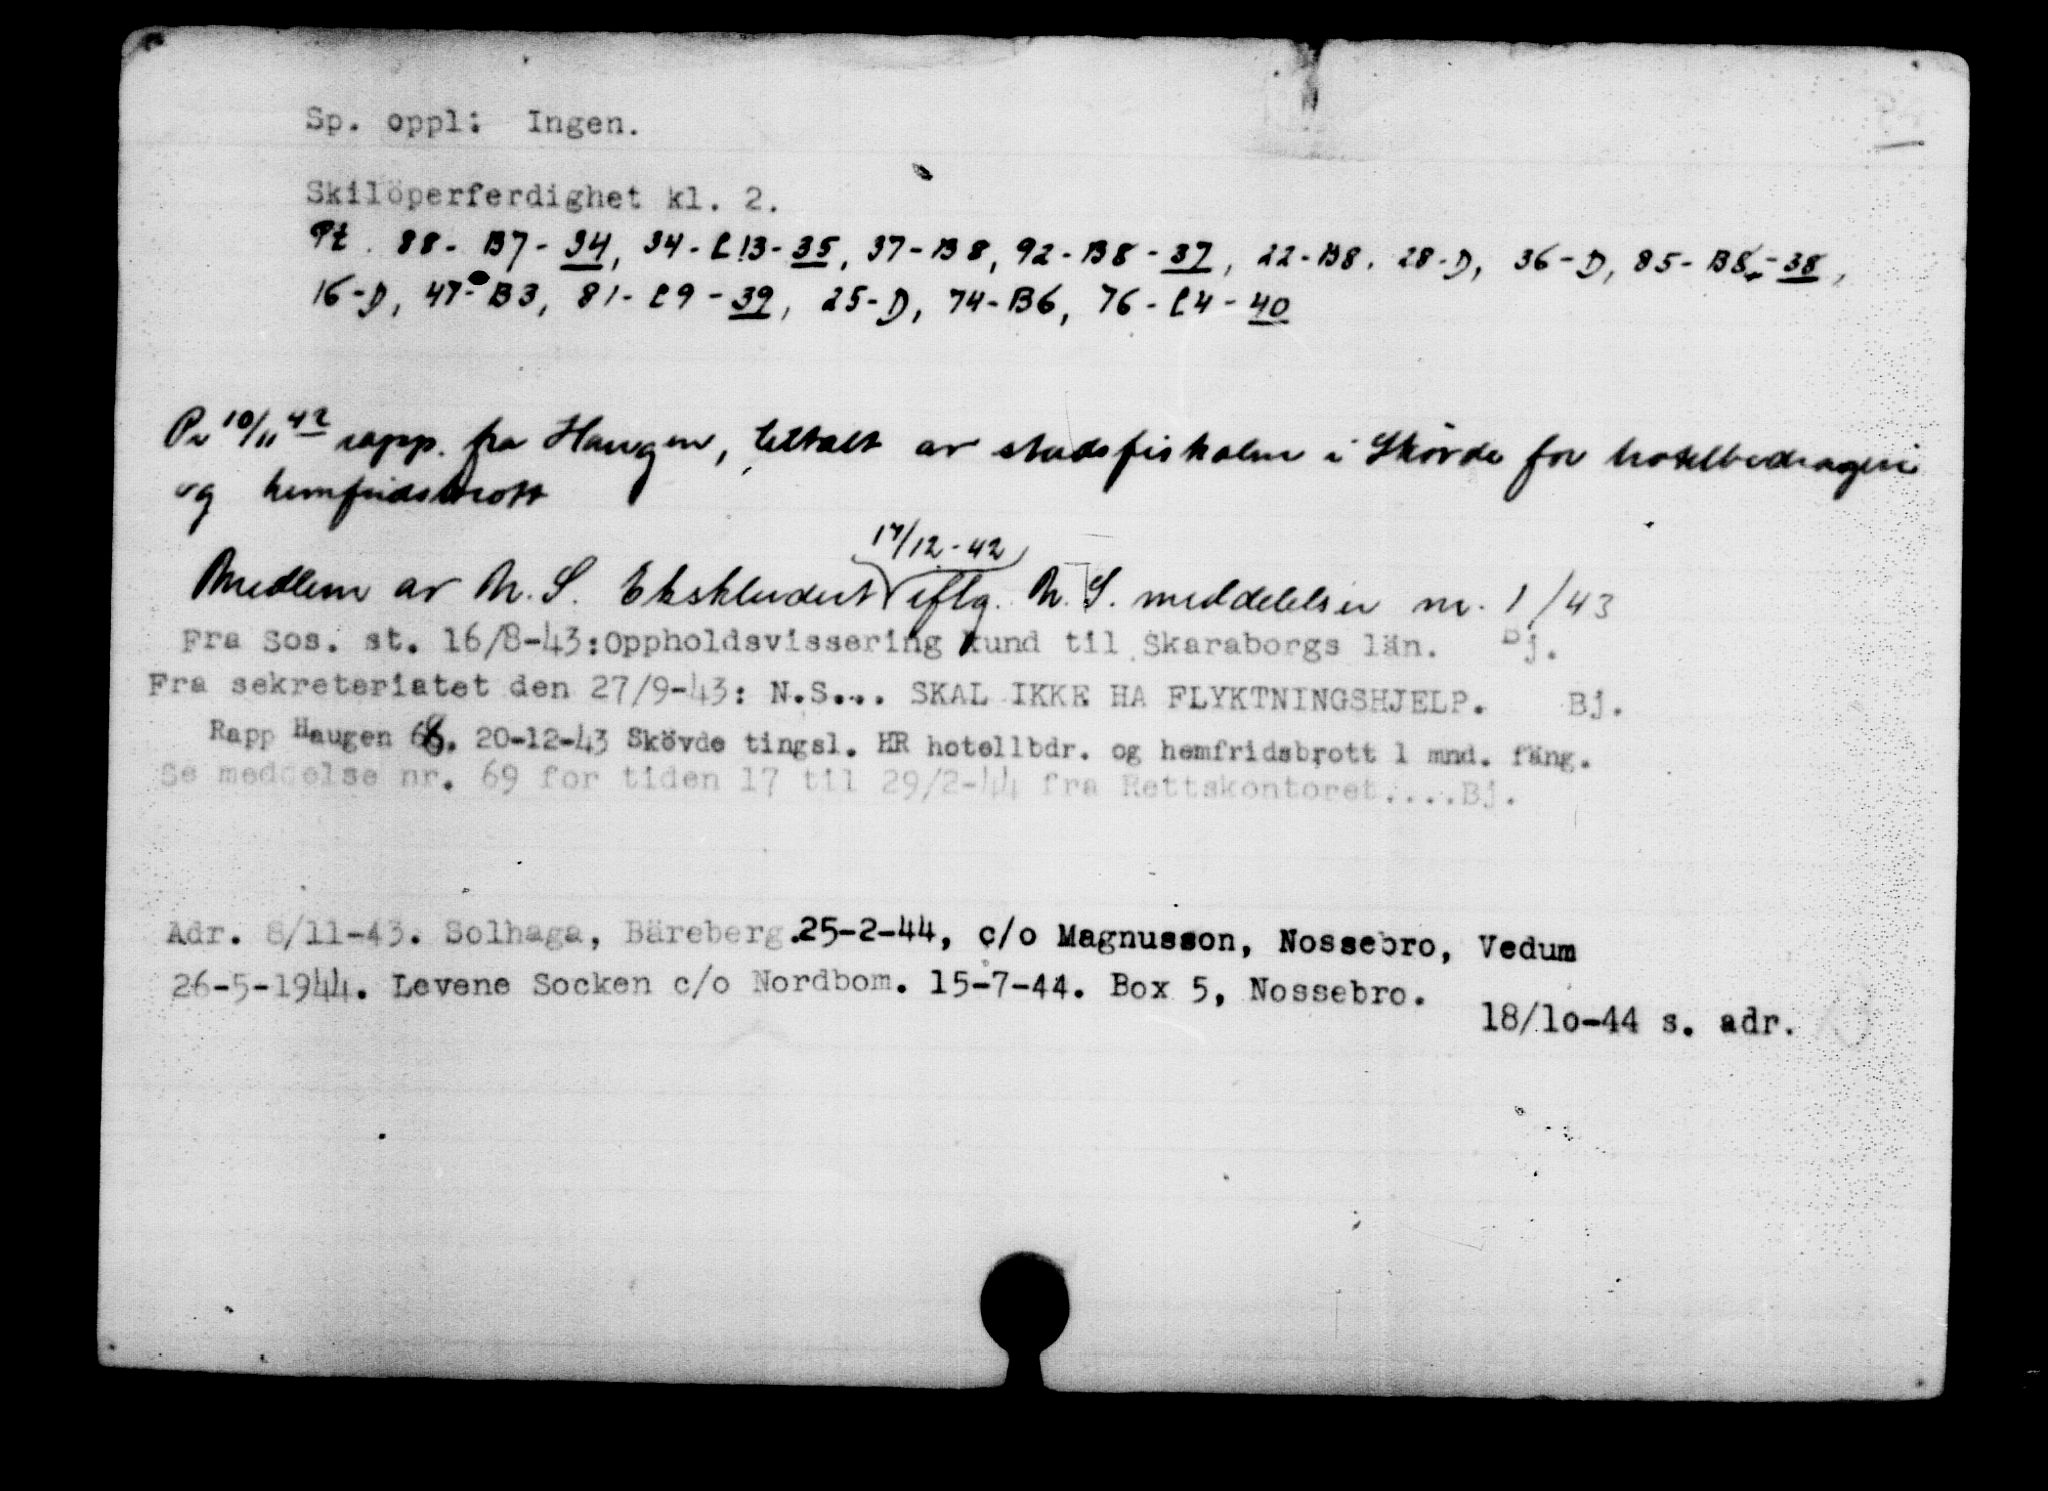 Sp. oppl: Ingen.
Skilöperferdighet kl. 2.
Pt. 88- B7- 34, 34- C13- 35, 37- B8, 92- B8 - 37, 22- B8. 28-D, 36-D, 85- B8 - 38,
16-D, 47- B3, 81- C9 - 39, 25-D, 74-B6, 76- C4 - 40
Pr 10/11 42 rapp. fra Haugen, tiltalt av stadsfiskalen i Skövde for hotelbedrageri
og hemfridsbrott
17/12-42
Medlem av N.S. Ekskludert iflg. N.S. meddelelser nr. 1/43
Fra Sos. st. 16/8-43:Oppholdsvissering kund til Skaraborgs län. Bj.
Fra sekreteriatet den 27/9-43: N.S... SKAL IKKE HA FLYKTNINGSHJELP. Bj.
Rapp Haugen 68. 20-12-43 Skövde tingsl. HR hotellbdr. og hemfridsbrott 1 mnd. fäng.
Se meddelse nr. 69 for tiden 17 til 29/2-44 fra Rettskontoret....Bj.
Adr. 8/11-43. Solhaga, Bäreberg.25-2-44, c/o Magnusson, Nossebro, Vedum
26-5-1944. Levene Socken c/o Nordbom. 15-7-44. Box 5, Nossebro.
18/1o-44 s. adr.